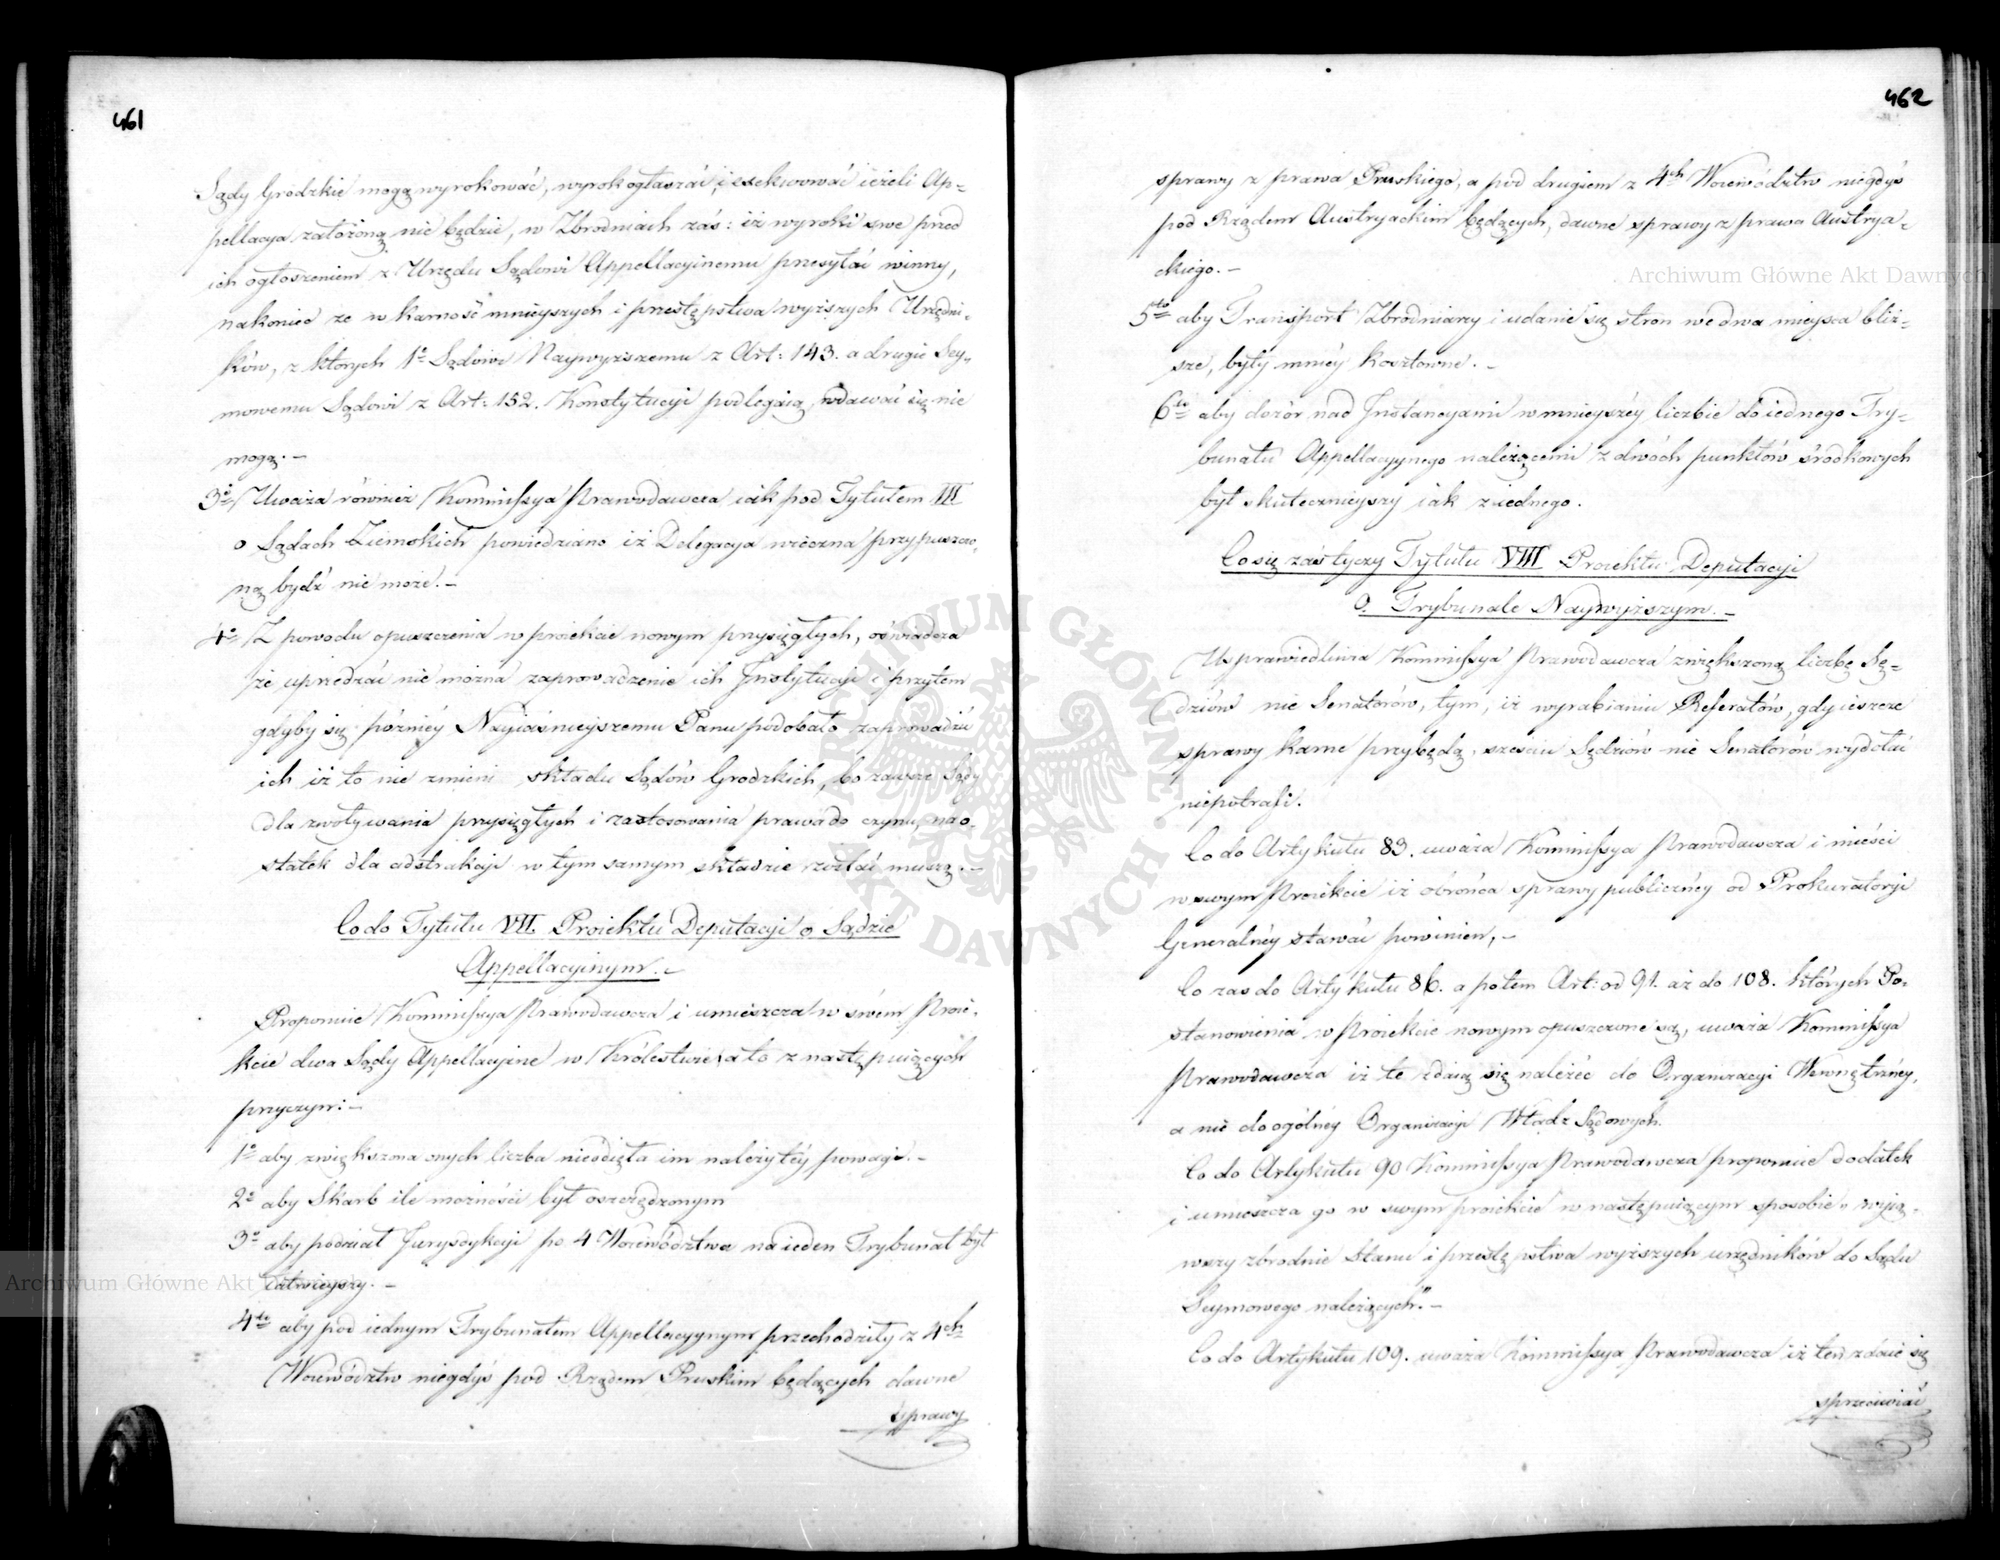 461
Sądy Grodzkie mogą wyrokować, wyrok ogłaszać, i exekwować ieżeli Ap-
pellacya założoną nie będzie, w Zbrodniach zaś: iż wyroki swe pred
ich ogłoszeniem z Urzędu Sądowi Appellacyinemu przesyłać winny,
nakoniec że w karność mnieyszych i przestępstwa wyższych Urzędni-
ków, z których 1º Sądowi Naywyższemu z Art: 143. a drugie Sey-
mowemu Sądowi z Art: 152. Konstytucyi podlegaią, wdawać się nie
mogą. –
3º/ Uważa również Kommissya Prawodawcza iak pod Tytułem III
o Sądach Ziemskich powiedziano iż Delegacya wieczna przypuszczo-
ną bydź nie może. –
4º/ Z powodu opuszczenia w proiekcie nowym przysięgłych, oświadcza
że uprzedzać nie można zaprowadzenie ich Instytucyi i przytem
gdyby się poźniéy Nayiaśnieyszemu Panu podobało zaprowadzić
ich iż to nie zmieni składu Sądów Grodzkich, bo zawsze Sądy
dla zwoływania przysięgłych i zastosowania prawa do czynu, na o-
statek dla adstrakcji w tym samym składzie zostać muszą. –
Co do Tytułu VII. Proiektu Deputacyi o Sądzie
Appellacyinym. –
Proponuie Kommissya Prawodawcza i umieszcza w swém Proie-
kcie dwa Sądy Appellacyine w Królestwie, a to z następuiących
przyczyn: –
1º aby zwiększona onych liczba nieodięła im należytéy powagi. –
2º aby Skarb ile możności był oszczędzonym
3º aby podział Jurysdykcyi po 4 Woiewództwa na ieden Trybunał był
łatwieyszy. –
4to aby pod iednym Trybunałem Appellacyynym przechodziły z 4ch
Woiewództw niegdyś pod Rządem Pruskim będących dawne
sprawy
462
sprawy z prawa Pruskiego, a pod drugiem z 4ch Woiewództw niegdyś
pod Rządem Austryackim będących, dawne sprawy z prawa Austrya-
ckiego. –
5to aby Transport Zbrodniarzy i udanie się stron we dwa mieysca bliż-
sze, były mniéy kosztowne. –
6to aby dozór nad Instancyami w mnieyszéy liczbie do iednego Try-
bunału Appellacyynego należącemi z dwóch punktów środkowych
był skutecznieyszy iak z iednego.
Co się zaś tyczy Tytułu VIII Proiektu Deputacyi
O Trybunale Naywyższym. –
Usprawiedliwia Kommissya Prawodawcza zwiększoną liczbę Sę-
dziów nie Senatorów, tym, iż wyrabianiu Referatów, gdy ieszcze
sprawy karne przybędą, sześciu Sędziów nie Senatorów wydołać
niepotrafi.
Co do Artykułu 83. uważa Kommissya Prawodawcza i mieści
w swym Proiekcie iż obrońca sprawy publicznéy od Prokuratoryi
Generalnéy stawać powinien, –
Co zas do Artykułu 86. a potem Art: od 91. aż do 108. których Po-
stanowienia w Proiekcie nowym opuszczone są, uważa Kommissya
Prawodawcza iż te zdaią się należéć do Organizacyi Wewnętrznéy,
a nie do ogólnéy Organizacyi Władz Sądowych.
Co do Artykułu 90 Kommissya Prawodawcza proponuie dodatek
i umieszcza go w swym proiekcie w następuiącym sposobie „wyią-
wszy zbrodnie Stanu i przestępstwa wyższych urzędników do Sądu
Seymowego należących." –
Co do Artykułu 109. uważa Kommissya Prawodawcza iż ten zdaie się
sprzeciwiać
Archiwum Główne Akt Dawnych
Archiwum Główne Akt Dawnych
ARCHIWUM GŁÓWNE AKT DAWNYCH